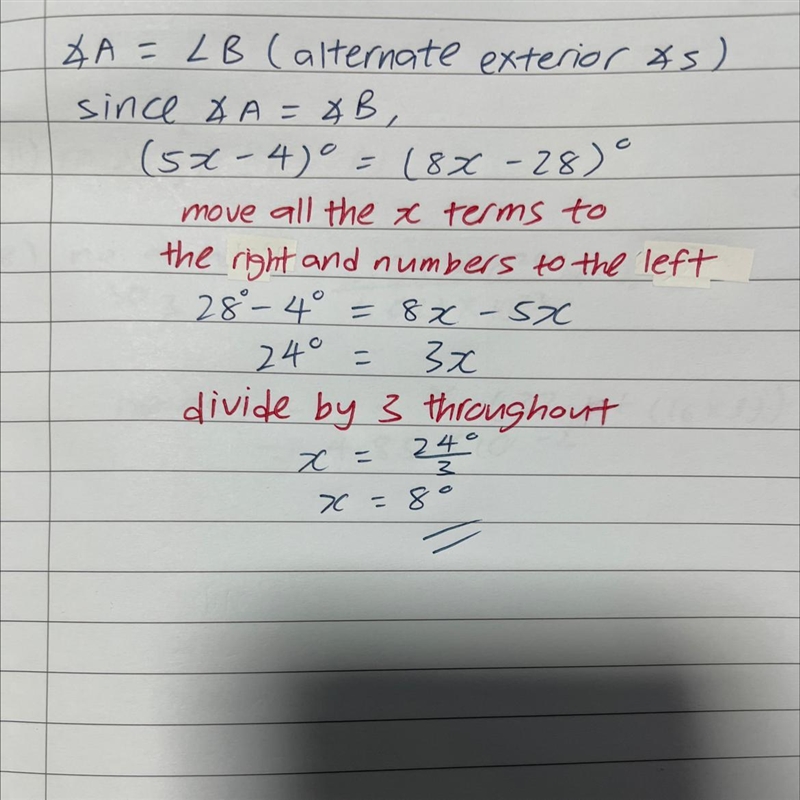 ∡A = ∠B (alternate exterior ∡s)
since ∡A = ∡B,
(5x - 4)° = (8x - 28)°
move all the x terms to
the right and numbers to the left
28° - 4° = 8x - 5x
24° = 3x
divide by 3 throughout
x = 24°/3
x = 8°